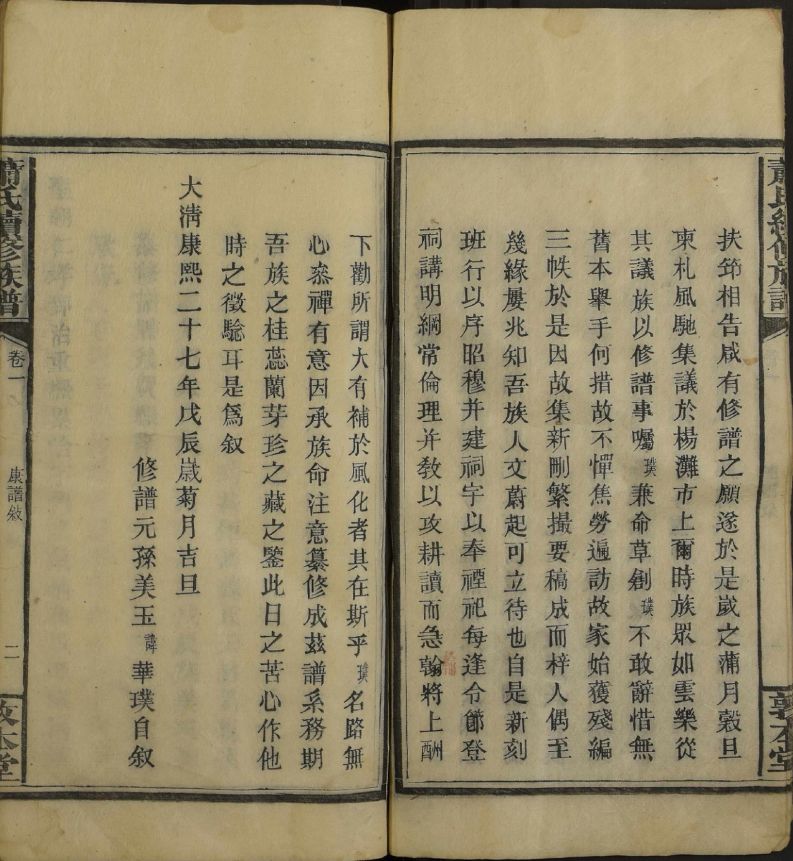 蕭氏續修族譜
敦本堂
扶筇相告咸有修譜之願遂於是歲之蒲月穀旦
柬札風馳集議於楊灘市上爾時族眾如雲樂從
其議族以修譜事囑璞兼命草創璞不敢辭惜無
舊本舉手何措故不憚焦勞遍訪故家始獲殘編
三帙於是因故集新刪繁撮要稿成而梓人偶至
幾緣屢兆知吾族人文蔚起可立待也自是新刻
班行以序昭穆并建祠宇以奉禋祀每逢令節登
祠講明綱常倫理并教以攻耕讀而急翰將上酬
下勸所謂大有補於風化者其在斯乎璞名路無
心叅禪有意因承族命注意纂修成茲譜系務期
吾族之桂蕊蘭芽珍之藏之鑒此日之苦心作他
時之徵驗耳是爲叙
大淸康熙二十七年戊辰歲菊月吉旦
修譜元孫美玉諱華璞自叙
蕭氏續修族譜
卷一
康譜敘
二
敦本堂